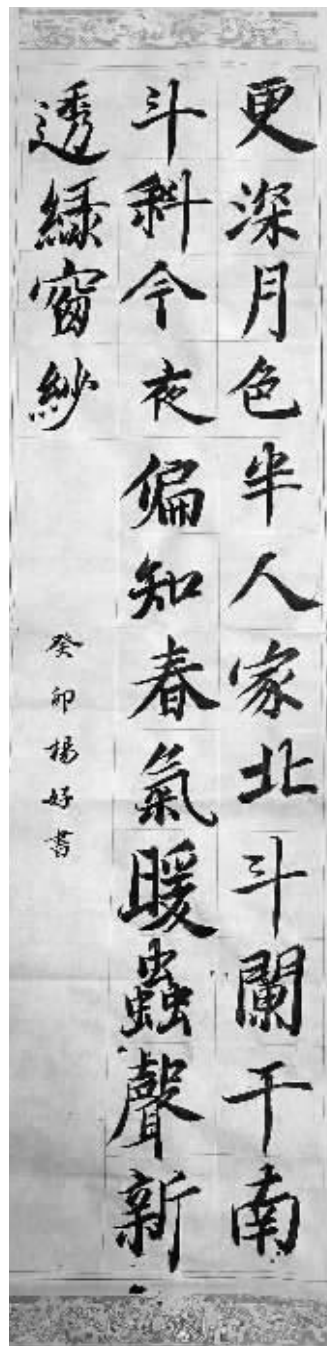 更深月色半人家北斗闌干南
斗斜今夜偏知春氣暖蟲聲新
透綠窗紗
癸卯楊好書